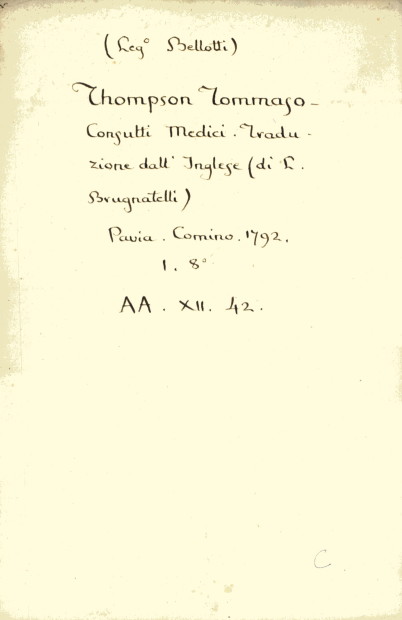 (Leg° Bellotti)
Thompson Tommaso -
Consulti Medici. Tradu -
zione dall' Inglese (di L.
Brugnatelli)
Pavia. Comino. 1792.
1. 8°
AA. XII. 42.
C